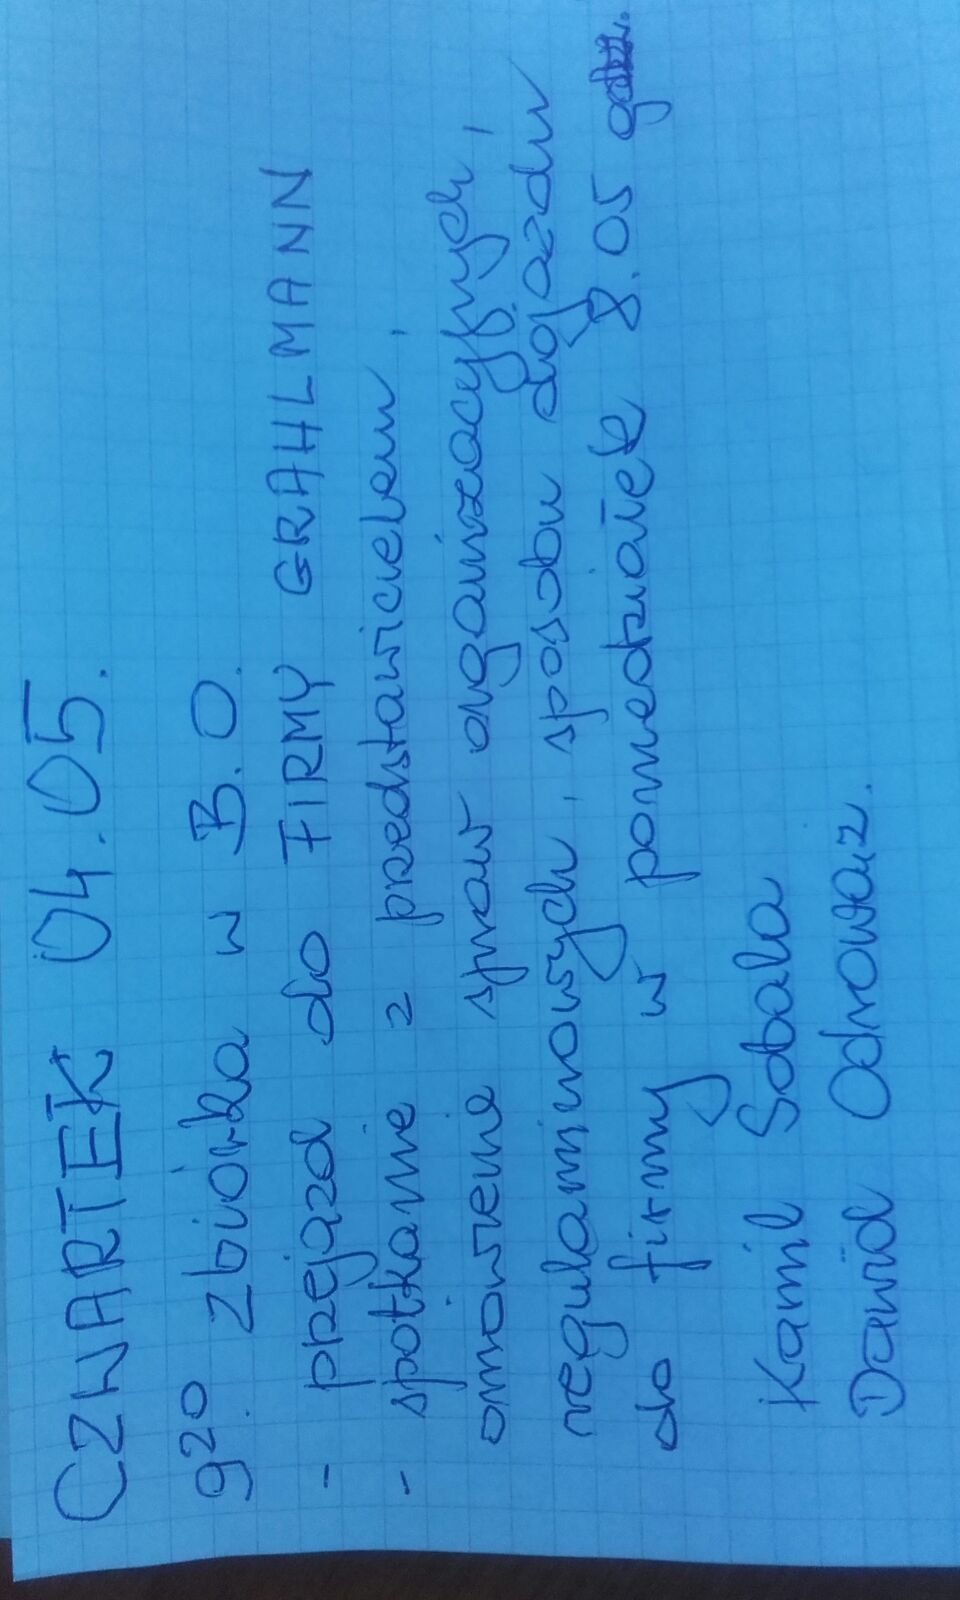 CZWARTEK 04.05.
9²⁰ zbiórka w B.O.
- przejazd do FIRMY GRAHLMANN
- spotkanie z przedstawicielem,
omówienie spraw organizacyjnych,
regulaminowych, sposobu dojazdu
do firmy w poniedziałek 8.05
Kamil Sobala
Dawid Odrowąż.